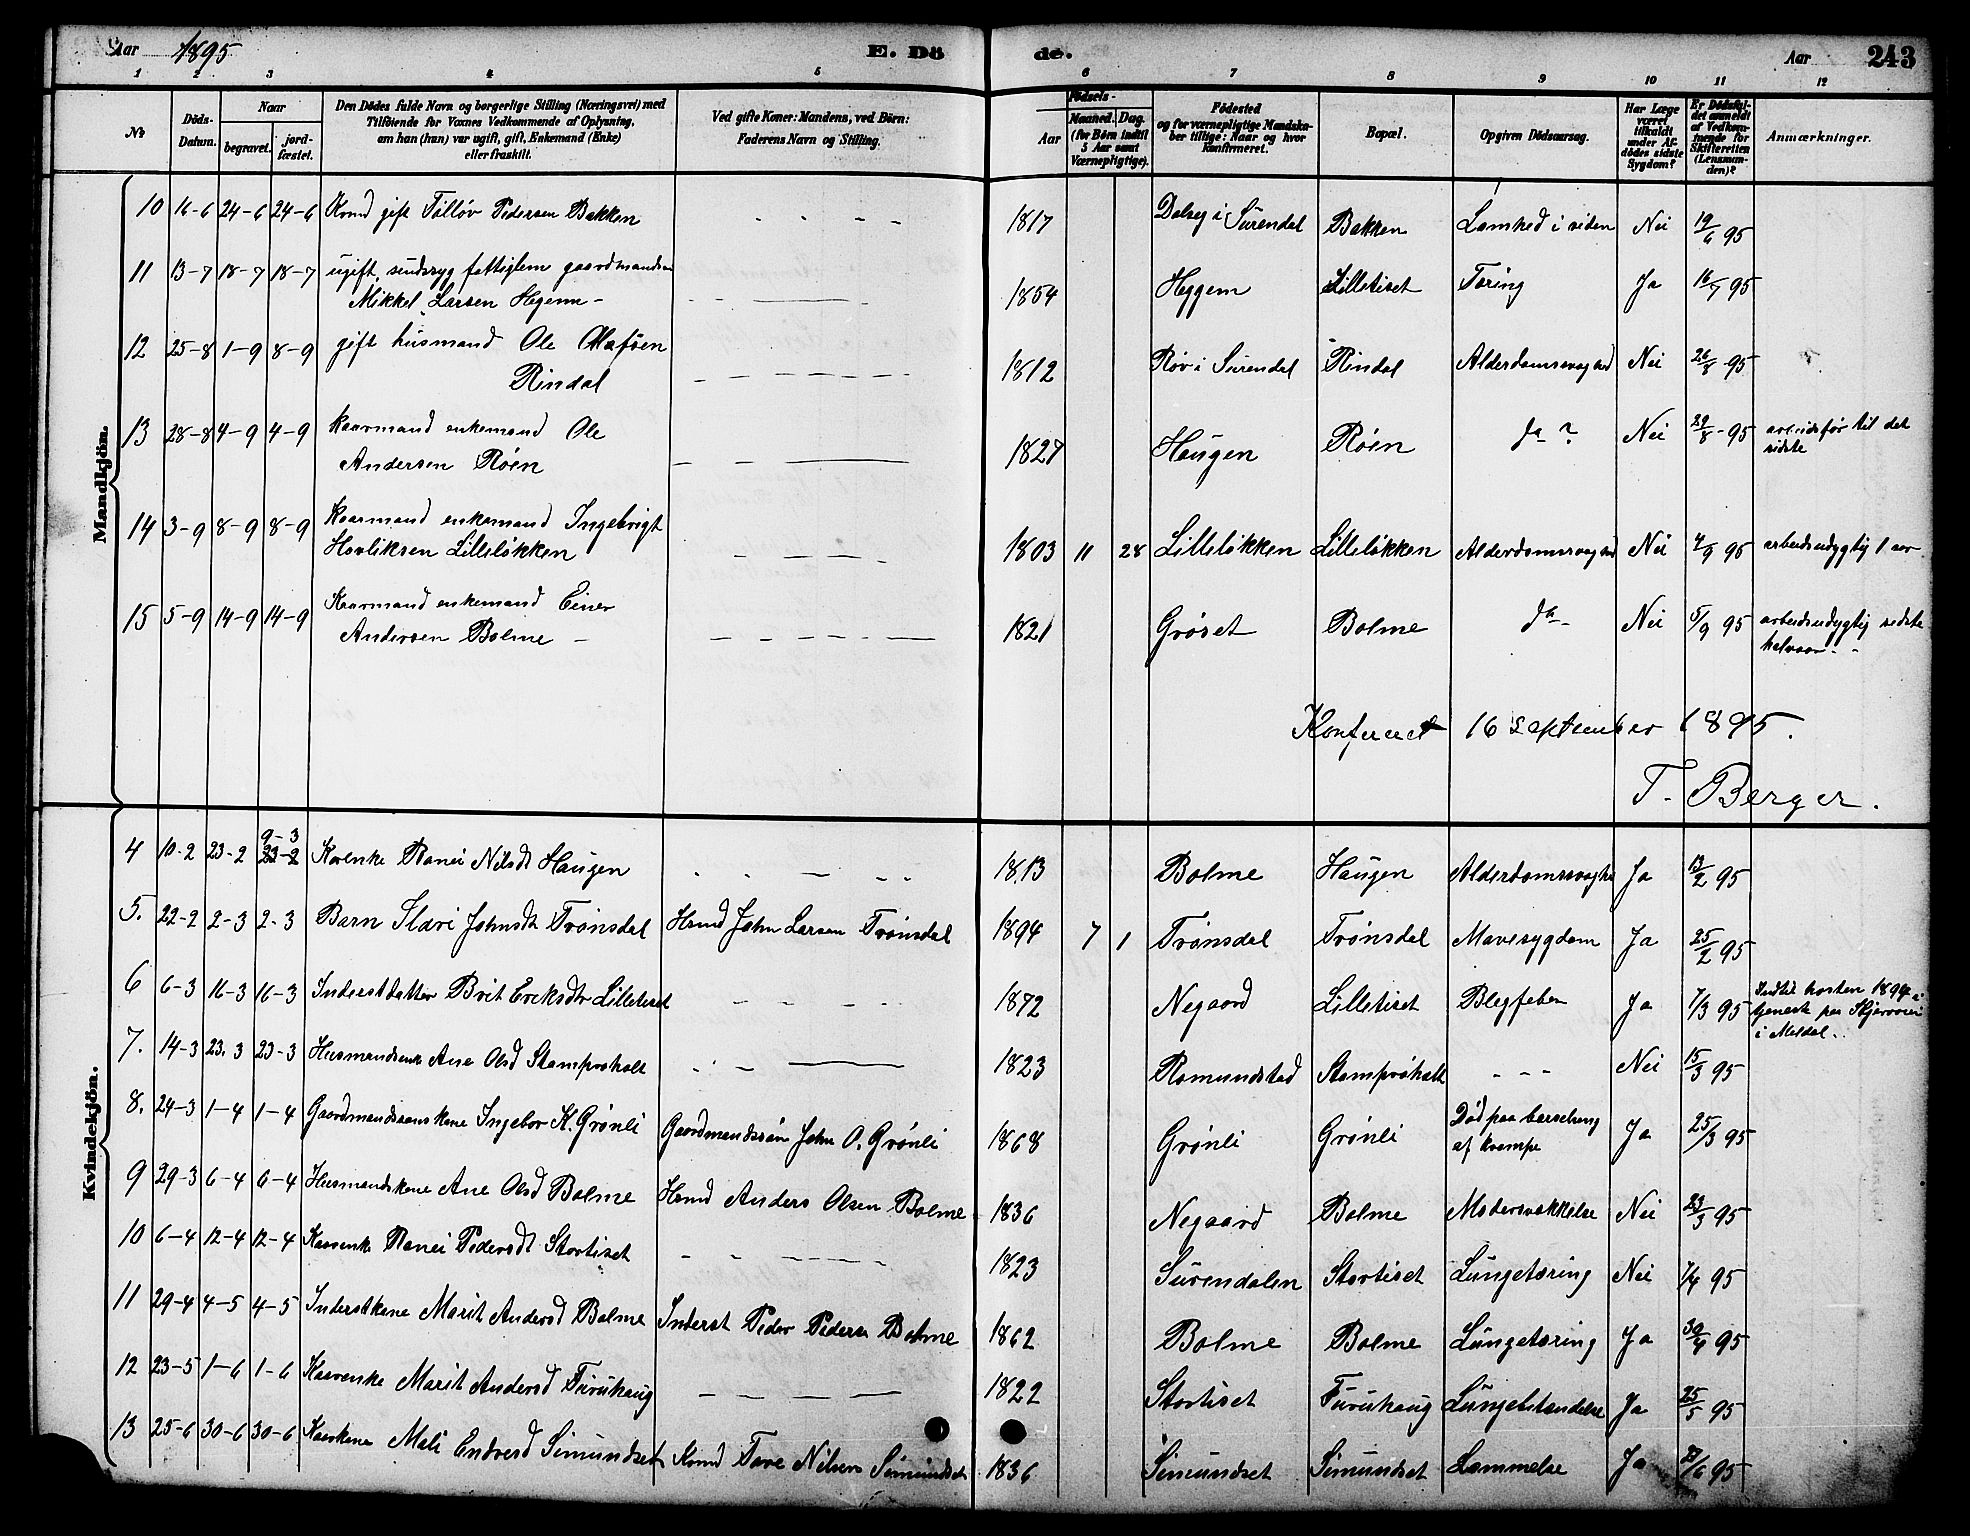 Aar 1895 E. Döde. Aar 243
1 2 3 4 5 6 7 8 9 10 11 12
No
Döds-Datum.
Naar
begravet.
jord-fæstet.
Den Dödes fulde Navn og borgerlige Stilling (Næringsvei) med
Tilföiende for Voxnes Vedkommende af Oplysning,
om han (hun) var ugift, gift, Enkemand (Enke)
eller fraskilt.
Ved gifte Koner: Mandens, ved Börn:
Faderens Navn og Stilling.
Födsels-
Aar
Maaned. Dag.
(for Börn indtil
5 Aar samt
Værnepligtige).
Födested
og for værnepligtige Mandska-
ber tillige: Naar og hvor
konfirmeret.
Bopæl.
Opgiven Dödsaarsag.
Har Læge
været
tilkaldt
under Af-
dödes sidste
Sygdom?
Er Dödsfal-
det anmeldt
af Vedkom-
mende for
Skifteretten
(Lensman-
den)?
Anmærkninger.
Mandkjön.
10 16-6 24-6 24-6 Kmd gift Tølløv Pedersen Bakken - - - - 1817 Dalsej i Surendal Bakken Lamhed i siden Nei 19/6 95
11 13-7 18-7 18-7 ugift, sindssyg fattiglem gaardmandsøn
Mikkel Larsen Hegem - 1854 Heggem Lilletiset Tæring Ja 16/7 95
12 25-8 1-9 8-9 gift husmand Ole Olafsen
Rindal 1812 Røv i Surendal Rindal Alderdomssvaghed Nei 26/8 95
13 28-8 4-9 4-9 kaarmand enkemand Ole
Andersen Røen 1827 Haugen Røen da ? Nei 29/8 - 95 arbeidsfør til det
sidste
14 3-9 8-9 8-9 kaarmand enkemand Ingebrigt
Havliksen Lilleløkken 1803 11 28 Lilleløkken Lilleløkken Alderdomssvaghed Nei 4/9 95 arbeidsudygtig 1 aar
15 5-9 14-9 14-9 Kaarmand enkemand Einer
Andersen Bolme - 1821 Grøset Bolme da - Nei 5/9 95 arbeidsudygtig sidste
halvaar - -
Konfereret 16 September 1895.
T. Berger.
Kvindekjön.
9-3
4 10-2 23-2 23-2 Kaarenke Ranei Nilsdt Haugen 1813 Bolme Haugen Alderdomssvaghe Ja 13/2 95
5. 22-2 2-3 2-3 Barn Slavi Johnsdt Trønsdal Hsmd John Larsen Trønsdal 1894 7 1 Trønsdal Trønsdal Mavesygdom Ja 25/2 95
6 6-3 16-3 16-3 Inderstdatter Brit Eriksdtr Lilletiset 1872 Negaard Lilletiset Blegfeber Ja 7/3 95 Indtil høsten 1894 i
tjeneste paa
i Meldal.
7. 14-3 23.3 23-3 Husmandsenke Ane Olsd Stamprøhalt 1823 Romundstad Stamprøhalt - - - Nei 15/3 95
8. 24-3 1-4 1-4 Gaardmandssønskone Ingebor K. Grønli Gaardmandssøn John O. Grønli 1868 Grønli Grønli Død paa barselseng
af krampe Ja 25/3 95
9 29-3 6-4 6-4 Husmandskone Ane Olsd Bolme Hsmd Anders Olsen Bolme 1836 Negaard Bolme Modersvækkelse Nei 23/3 95
10 6-4 12-4 12-4 Kaarenke Ranei Pedersdt Stortiset 1823 Surendalen Stortiset Lungetæring Nei 7/4 95
11 29-4 4-5 4-5 Inderstkone Marit Andersd Bolme Inderst Peder Pedersen Bolme 1862 Bolme Bolme Lungetæring Ja 30/4 95
12 23-5 1-6 1-6 Kaarenke Marit Andersd Furuhaug 1822 Stortiset Furuhaug Lungebetændelse Ja 25/5 95
13 25-6 30-6 30-6 Kaarkone Mali Endresd Simundset Kmd Tore Nilsen Simundset 1836 Simundset Simundset Lammelse Ja 27/6 95